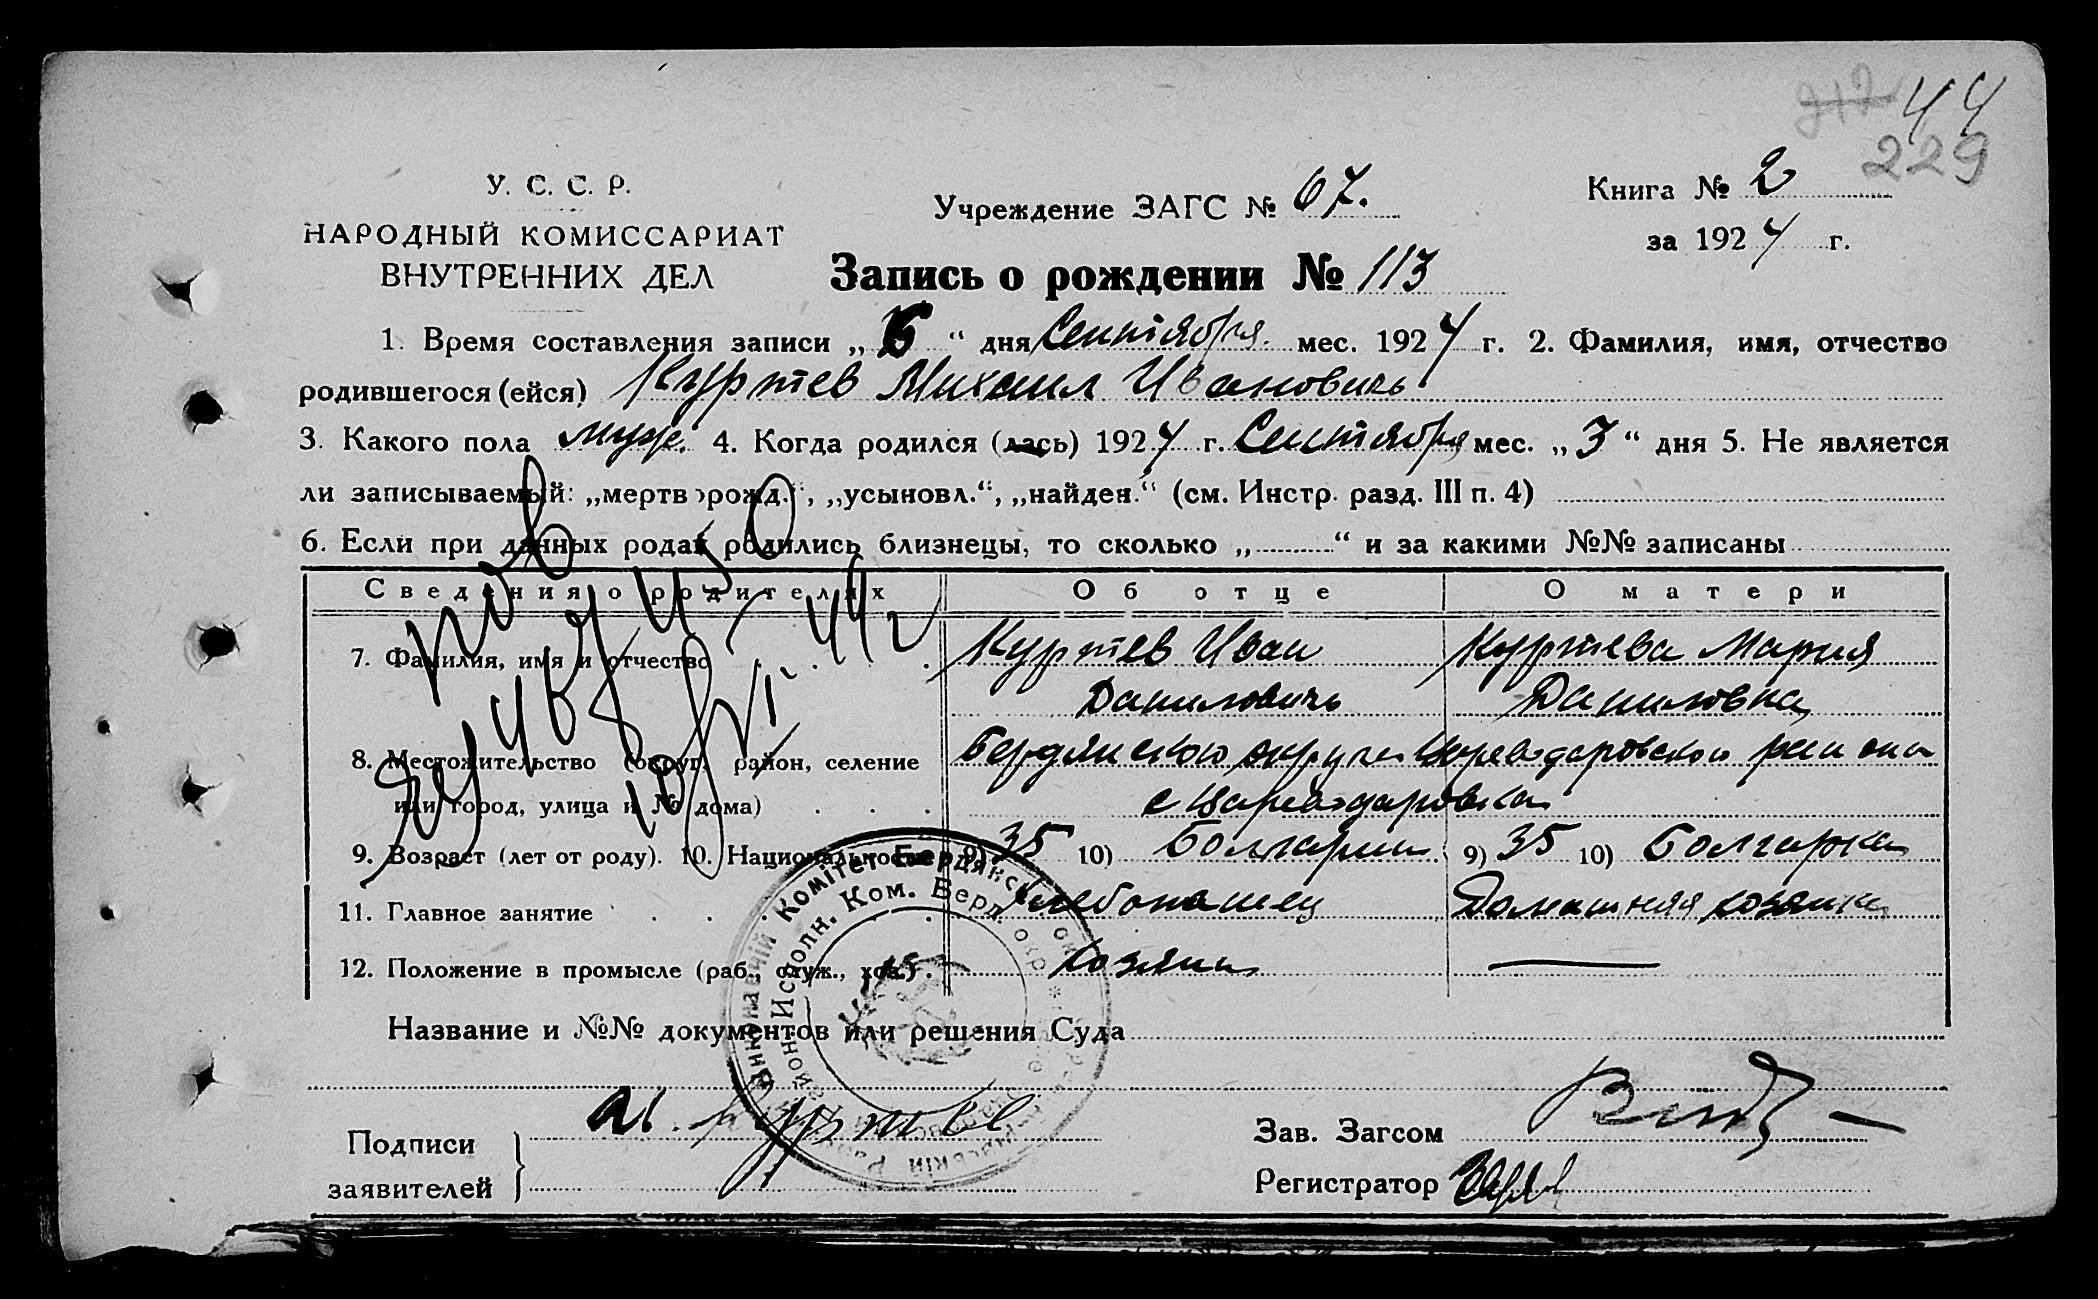 212 44
229
У. С. С. Р.
НАРОДНЫЙ КОМИССАРИАТ
ВНУТРЕННИХ ДЕЛ
Учреждение ЗАГС № 67.
Книга № 2
за 1924 г.
Запись о рождении № 113
1. Время составления записи „6“ дня Сентября мес. 1924 г. 2. Фамилия, имя, отчество
родившегося (ейся) Куртев Михаил Ивановичь
3. Какого пола муж. 4. Когда родился (лась) 1924 г. Сентября мес. „3“ дня 5. Не является
ли записываемый: „мертворожд.“, „усыновл.“, „найден.“ (см. Инстр. разд. III п. 4)
6. Если при данных родах родились близнецы, то сколько „..........“ и за какими №№ записаны
Сведения о родителях Об отце О матери
7. Фамилия, имя и отчество Куртев Иван Куртева Мария
Даниловичь Даниловна
8. Местожительство (округ, район, селение Бердянского округа Царедаровского района
или город, улица и № дома) с Царедаровка
9. Возраст (лет от роду). 10. Национальность 9) 35 10) Болгарин 9) 35 10) Болгарка
11. Главное занятие Хлебопашец Домашняя хозяйка
12. Положение в промысле (раб., служ., хоз.) Хозяин —
Название и №№ документов или решения Суда
Подписи
заявителей
И. Куртев
Зав. Загсом
Регистратор
Комітет Бердянськ
Исполн. Ком. Берд. окр.